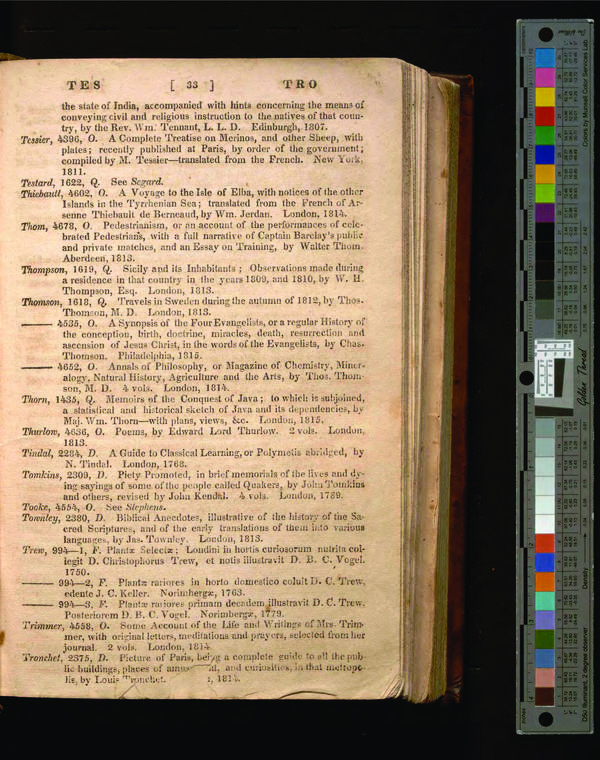 TES [ 33 ] TRO
the state of India, accompanied with hints concerning the means of
conveying civil and religious instruction to the natives of that coun-
try, by the Rev. Wm. Tennant, L. L. D. Edinburgh, 1807.
Tessier, 4396, O. A Complete Treatise on Merinos, and other Sheep, with
plates; recently published at Paris, by order of the government;
compiled by M. Tessier—translated from the French. New York,
1811.
Testard, 1622, Q. See Segard.
Thiebault, 4602, O. A Voyage to the Isle of Elba, with notices of the other
Islands in the Tyrrhenian Sea; translated from the French of Ar-
senne Thiebault de Berneaud, by Wm. Jerdan. London, 1814.
Thom, 4678, O. Pedestrianism, or an account of the performances of cele-
brated Pedestrians, with a full narrative of Captain Barclay's public
and private matches, and an Essay on Training, by Walter Thom.
Aberdeen, 1813.
Thompson, 1619, Q. Sicily and its Inhabitants; Observations made during
a residence in that country in the years 1809, and 1810, by W. H.
Thompson, Esq. London, 1813.
Thomson, 1618, Q. Travels in Sweden during the autumn of 1812, by Thos.
Thomson, M. D. London, 1813.
—— 4535, O. A Synopsis of the Four Evangelists, or a regular History of
the conception, birth, doctrine, miracles, death, resurrection and
ascension of Jesus Christ, in the words of the Evangelists, by Chas.
Thomson. Philadelphia, 1815.
—— 4652, O. Annals of Philosophy, or Magazine of Chemistry, Miner-
alogy, Natural History, Agriculture and the Arts, by Thos. Thom-
son, M. D. 4 vols. London, 1814.
Thorn, 1435, Q. Memoirs of the Conquest of Java; to which is subjoined,
a statistical and historical sketch of Java and its dependencies, by
Maj. Wm. Thorn—with plans, views, &c. London, 1815.
Thurlow, 4636, O. Poems, by Edward Lord Thurlow. 2 vols. London,
1813.
Tindal, 2284, D. A Guide to Classical Learning, or Polymetis abridged, by
N. Tindal. London, 1768.
Tomkins, 2309, D. Piety Promoted, in brief memorials of the lives and dy-
ing sayings of some of the people called Quakers, by John Tomkins
and others, revised by John Kendal. 4 vols. London, 1789.
Tooke, 4554, O. See Stephens.
Townley, 2380, D. Biblical Anecdotes, illustrative of the history of the Sa-
cred Scriptures, and of the early translations of them into various
languages, by Jas. Townley. London, 1813.
Trew, 994—1, F. Plantæ Selectæ; Londini in hortis curiosorum nutrita col-
legit D. Christophorus Trew, et notis illustravit D. B. C. Vogel.
1750.
—— 994—2, F. Plantæ rariores in horto domestico coluit D. C. Trew,
edente J. C. Keller. Norimbergæ, 1763.
—— 994—3, F. Plantæ rariores primam decadem illustravit D. C. Trew.
Posteriorem D. B. C. Vogel. Norimbergæ, 1779.
Trimmer, 4558, O. Some Account of the Life and Writings of Mrs. Trim-
mer, with original letters, meditations and prayers, selected from her
journal. 2 vols. London, 1814.
Tronchet, 2375, D. Picture of Paris, being a complete guide to all the pub-
lic buildings, places of and curiosities, in that metropo
lis, by Louis Tronchet. 1814.
Golden Thread